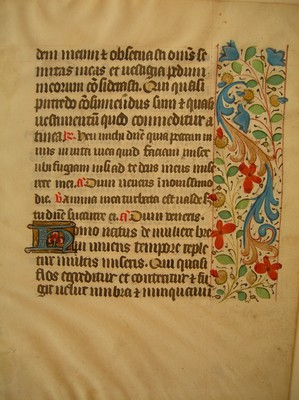 dem meum et obseruasti om̄s se
mitas meas et vestigia pedum
meorum cōsiderasti. Qui quasi
putredo cōsumēdus sum et quasi
vestimentū quod comeditur a
tinea. R. Heu michi dn̄e quia peccaui ni
mis in vita mea quid faciam miser
ubi fugiam nisi ad te deus meus mise
rere mei. Dum veneris in nouissimo
die. V. Anima mea turbata est valde sz
tu dn̄e succurre ei. Dum veneris.
Homo natus de muliere bre
ui viuens tempore reple
tur multis miseriis. Qui quasi
flos egreditur et conteritur et fu
git velut umbra et nunquam